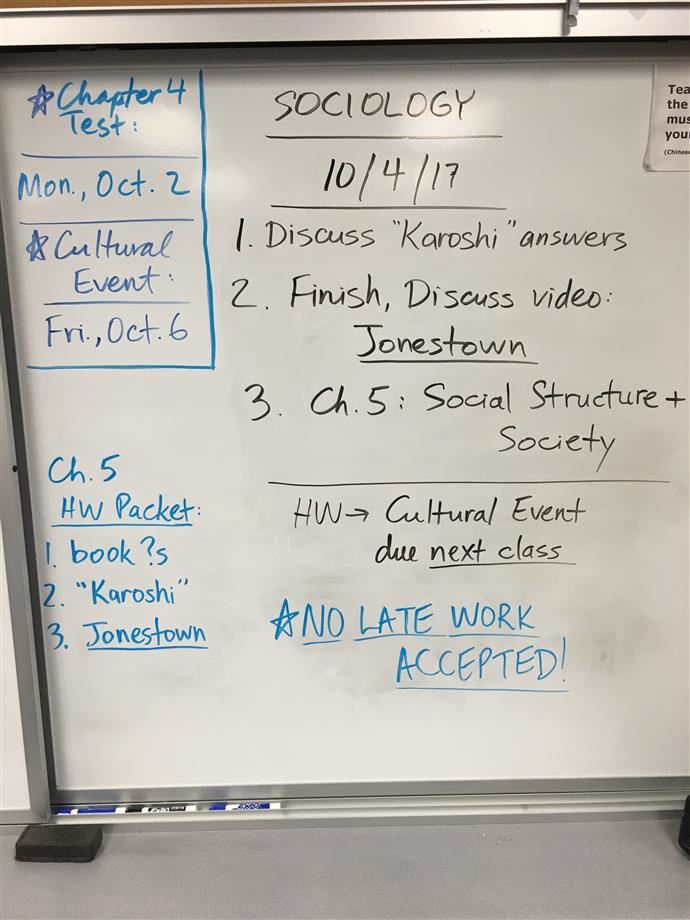 ☆Chapter 4
Test:
Mon., Oct. 2
☆Cultural
Event:
Fri., Oct. 6
Ch. 5
HW Packet:
1. book ?s
2. "Karoshi"
3. Jonestown
SOCIOLOGY
10/4/17
1. Discuss "Karoshi" answers
2. Finish, Discuss video:
Jonestown
3. Ch. 5: Social Structure +
Society
HW→ Cultural Event
due next class
☆NO LATE WORK
ACCEPTED!
Tea
the
mus
you
(Chines